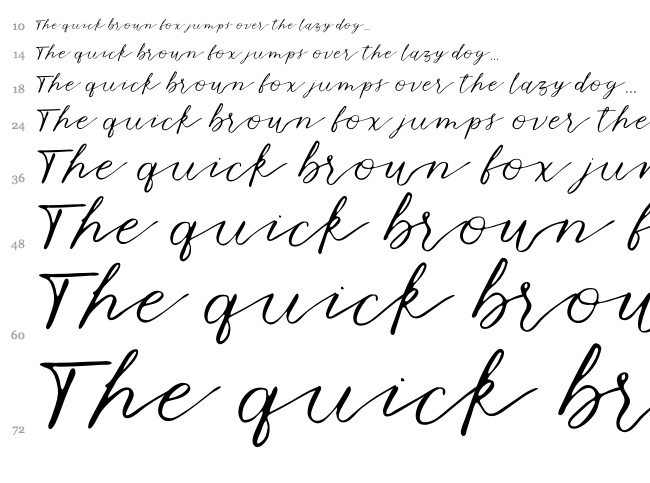 10 The quick brown fox jumps over the lazy dog...
14 The quick brown fox jumps over the lazy dog...
18 The quick brown fox jumps over the lazy dog...
24 The quick brown fox jumps over the
36 The quick brown fox jun
48 The quick brown f
60 The quick brou
72 The quick br